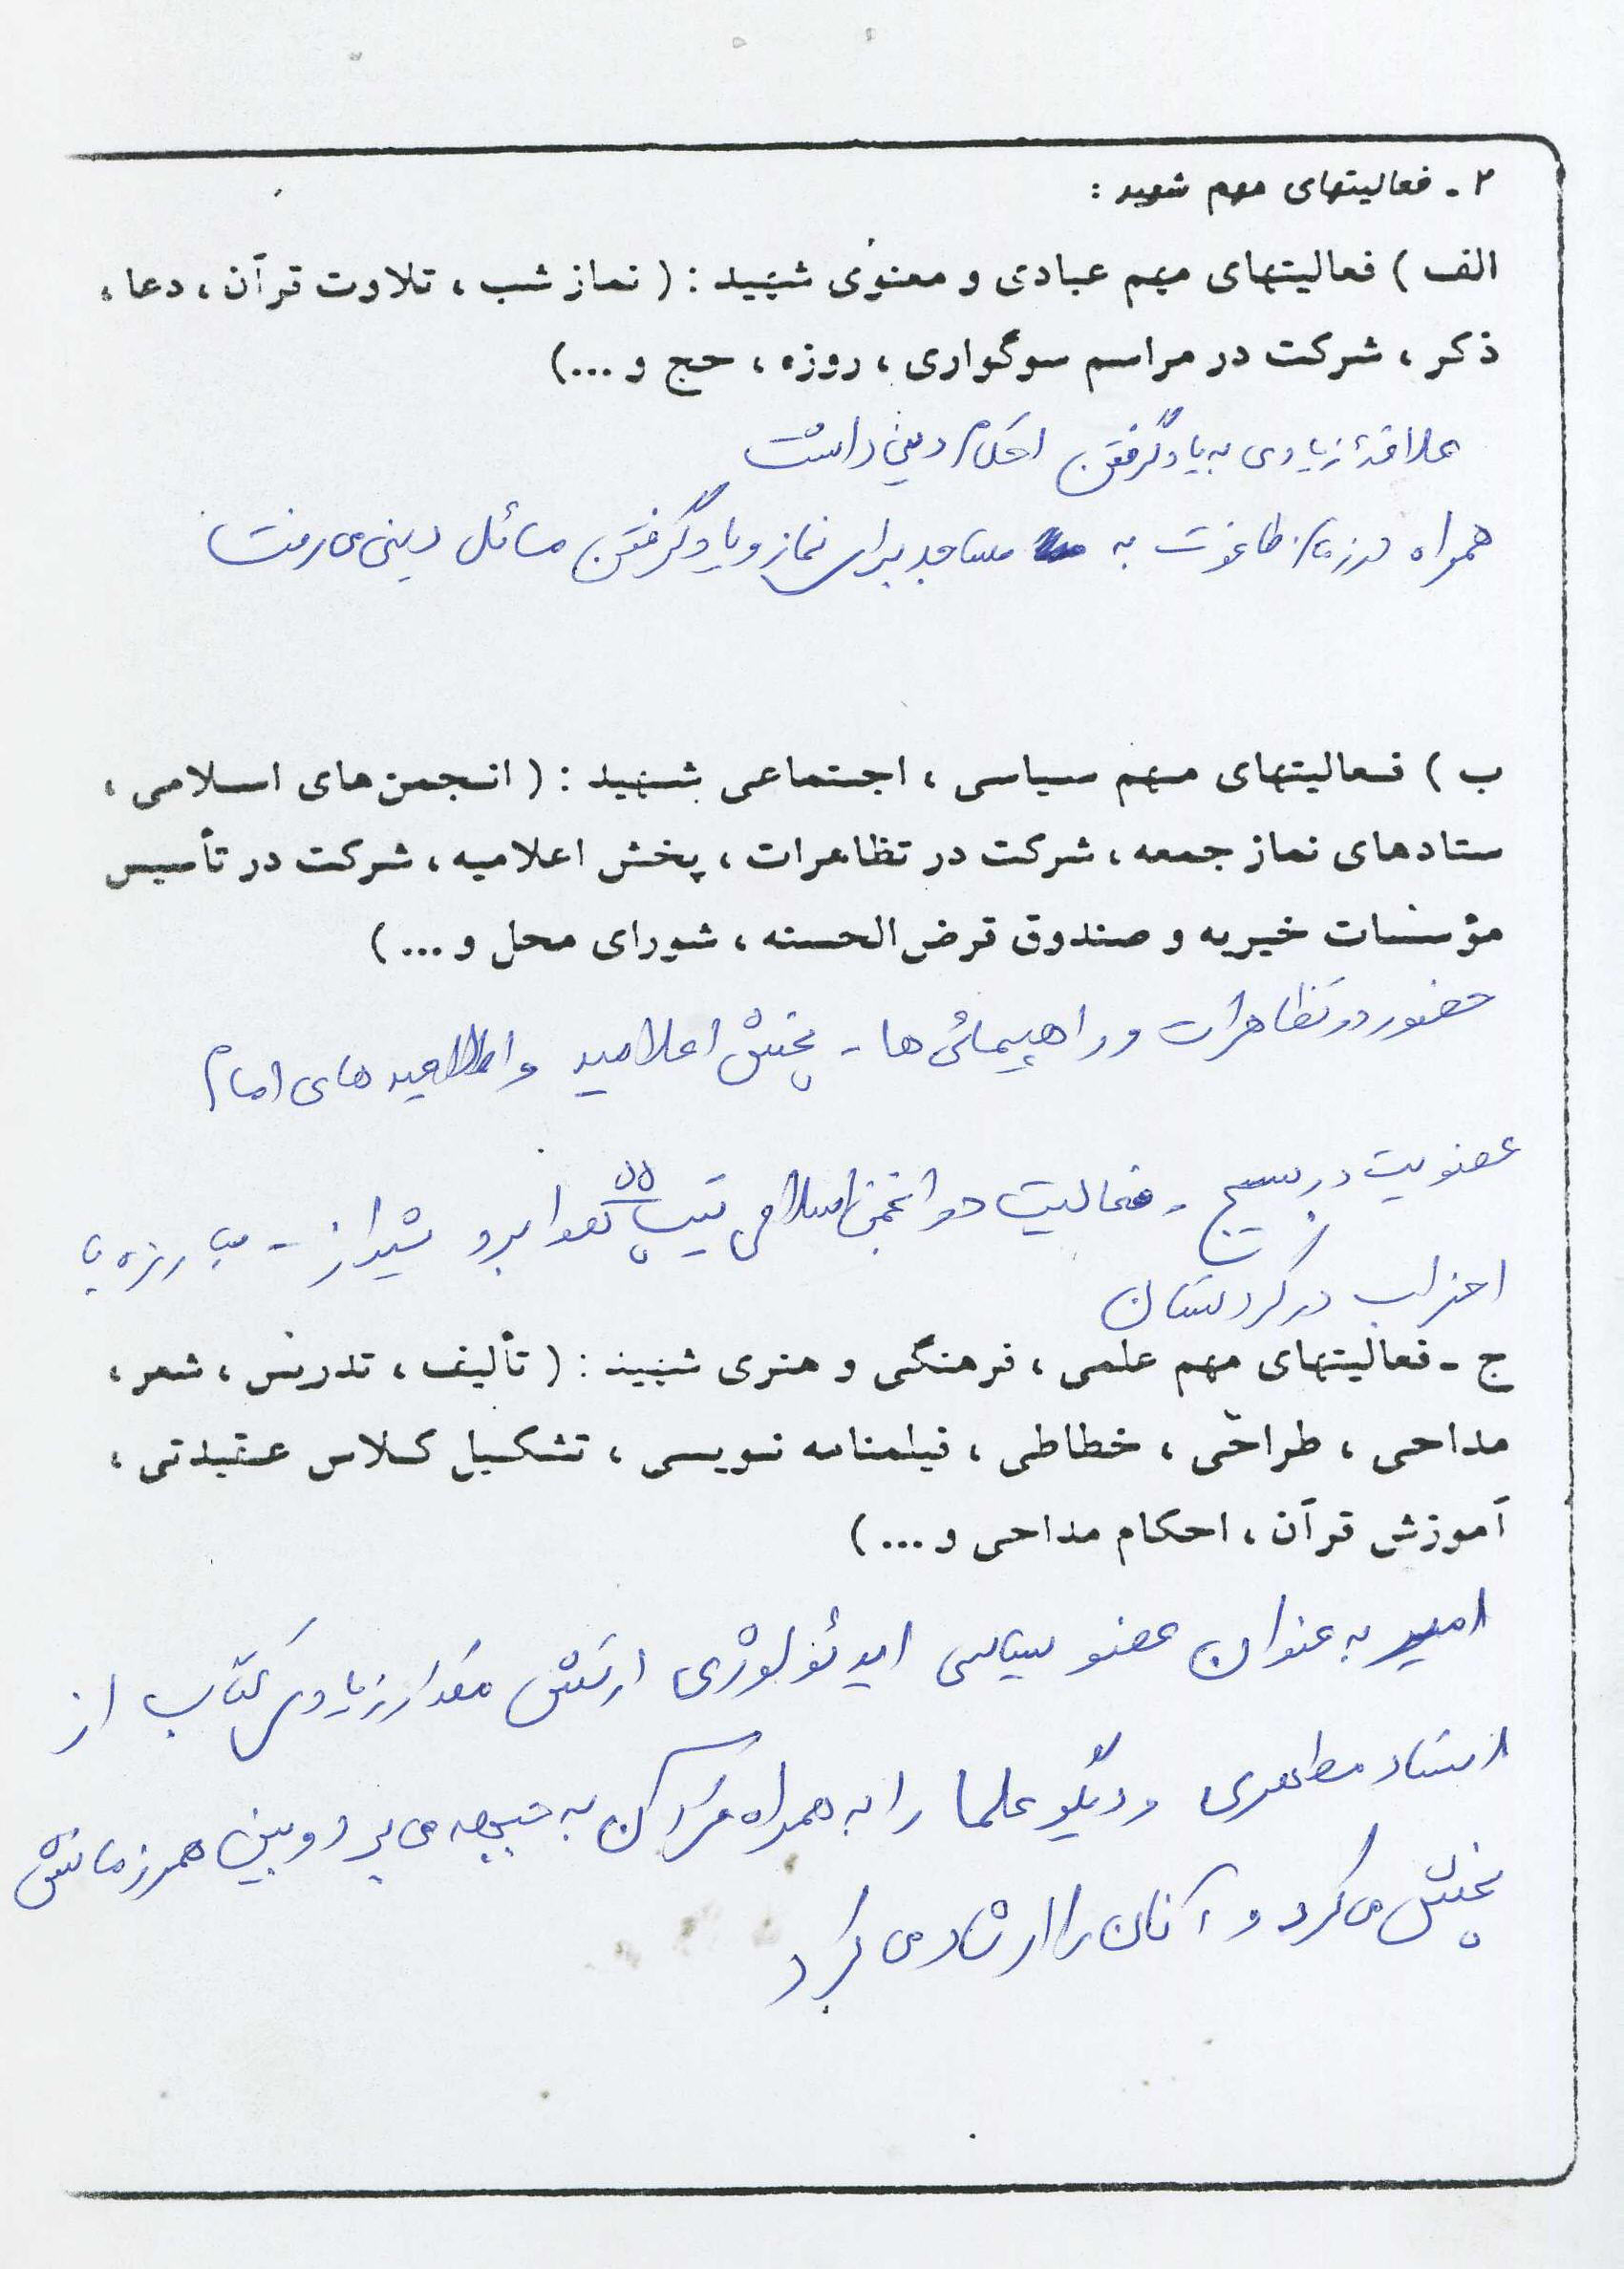 ۲ - فعالیتهای مهم شهید :
الف ) فعالیتهای مهم عبادی و معنوی شهید : ( نماز شب ، تلاوت قرآن ، دعا ،
ذکر ، شرکت در مراسم سوگواری ، روزه ، حج و ...)
علاقهٔ زیادی به یادگرفتن احکام دینی داشت
همراه در زمان طاغوت به مساجد برای نماز و یادگرفتن مسائل دینی می رفت
ب ) فعالیتهای مهم سیاسی ، اجتماعی شهید : ( انجمن های اسلامی ،
ستادهای نماز جمعه ، شرکت در تظاهرات ، پخش اعلامیه ، شرکت در تأسیس
مؤسسات خیریه و صندوق قرض الحسنه ، شورای محل و ... )
حضور در تظاهرات و راهپیمائی ها - پخش اعلامیه و اطلاعیه های امام
عضویت در بسیج - فعالیت در انجمن اسلامی تیپ ۵۵ هوابرد شیراز - مبارزه با
احزاب در کردستان
ج - فعالیتهای مهم علمی ، فرهنگی و هنری شهید : ( تألیف ، تدریس ، شعر ،
مداحی ، طراحی ، خطاطی ، فیلمنامه نویسی ، تشکیل کلاس عقیدتی ،
آموزش قرآن ، احکام مداحی و ... )
امیر به عنوان عضو سیاسی ایدئولوژی ارتش مقدار زیادی کتاب از
استاد مطهری و دیگر علما را به همراه قرآن به جبهه می برد و بین همرزمانش
پخش می کرد و آنان را ارشاد می کرد